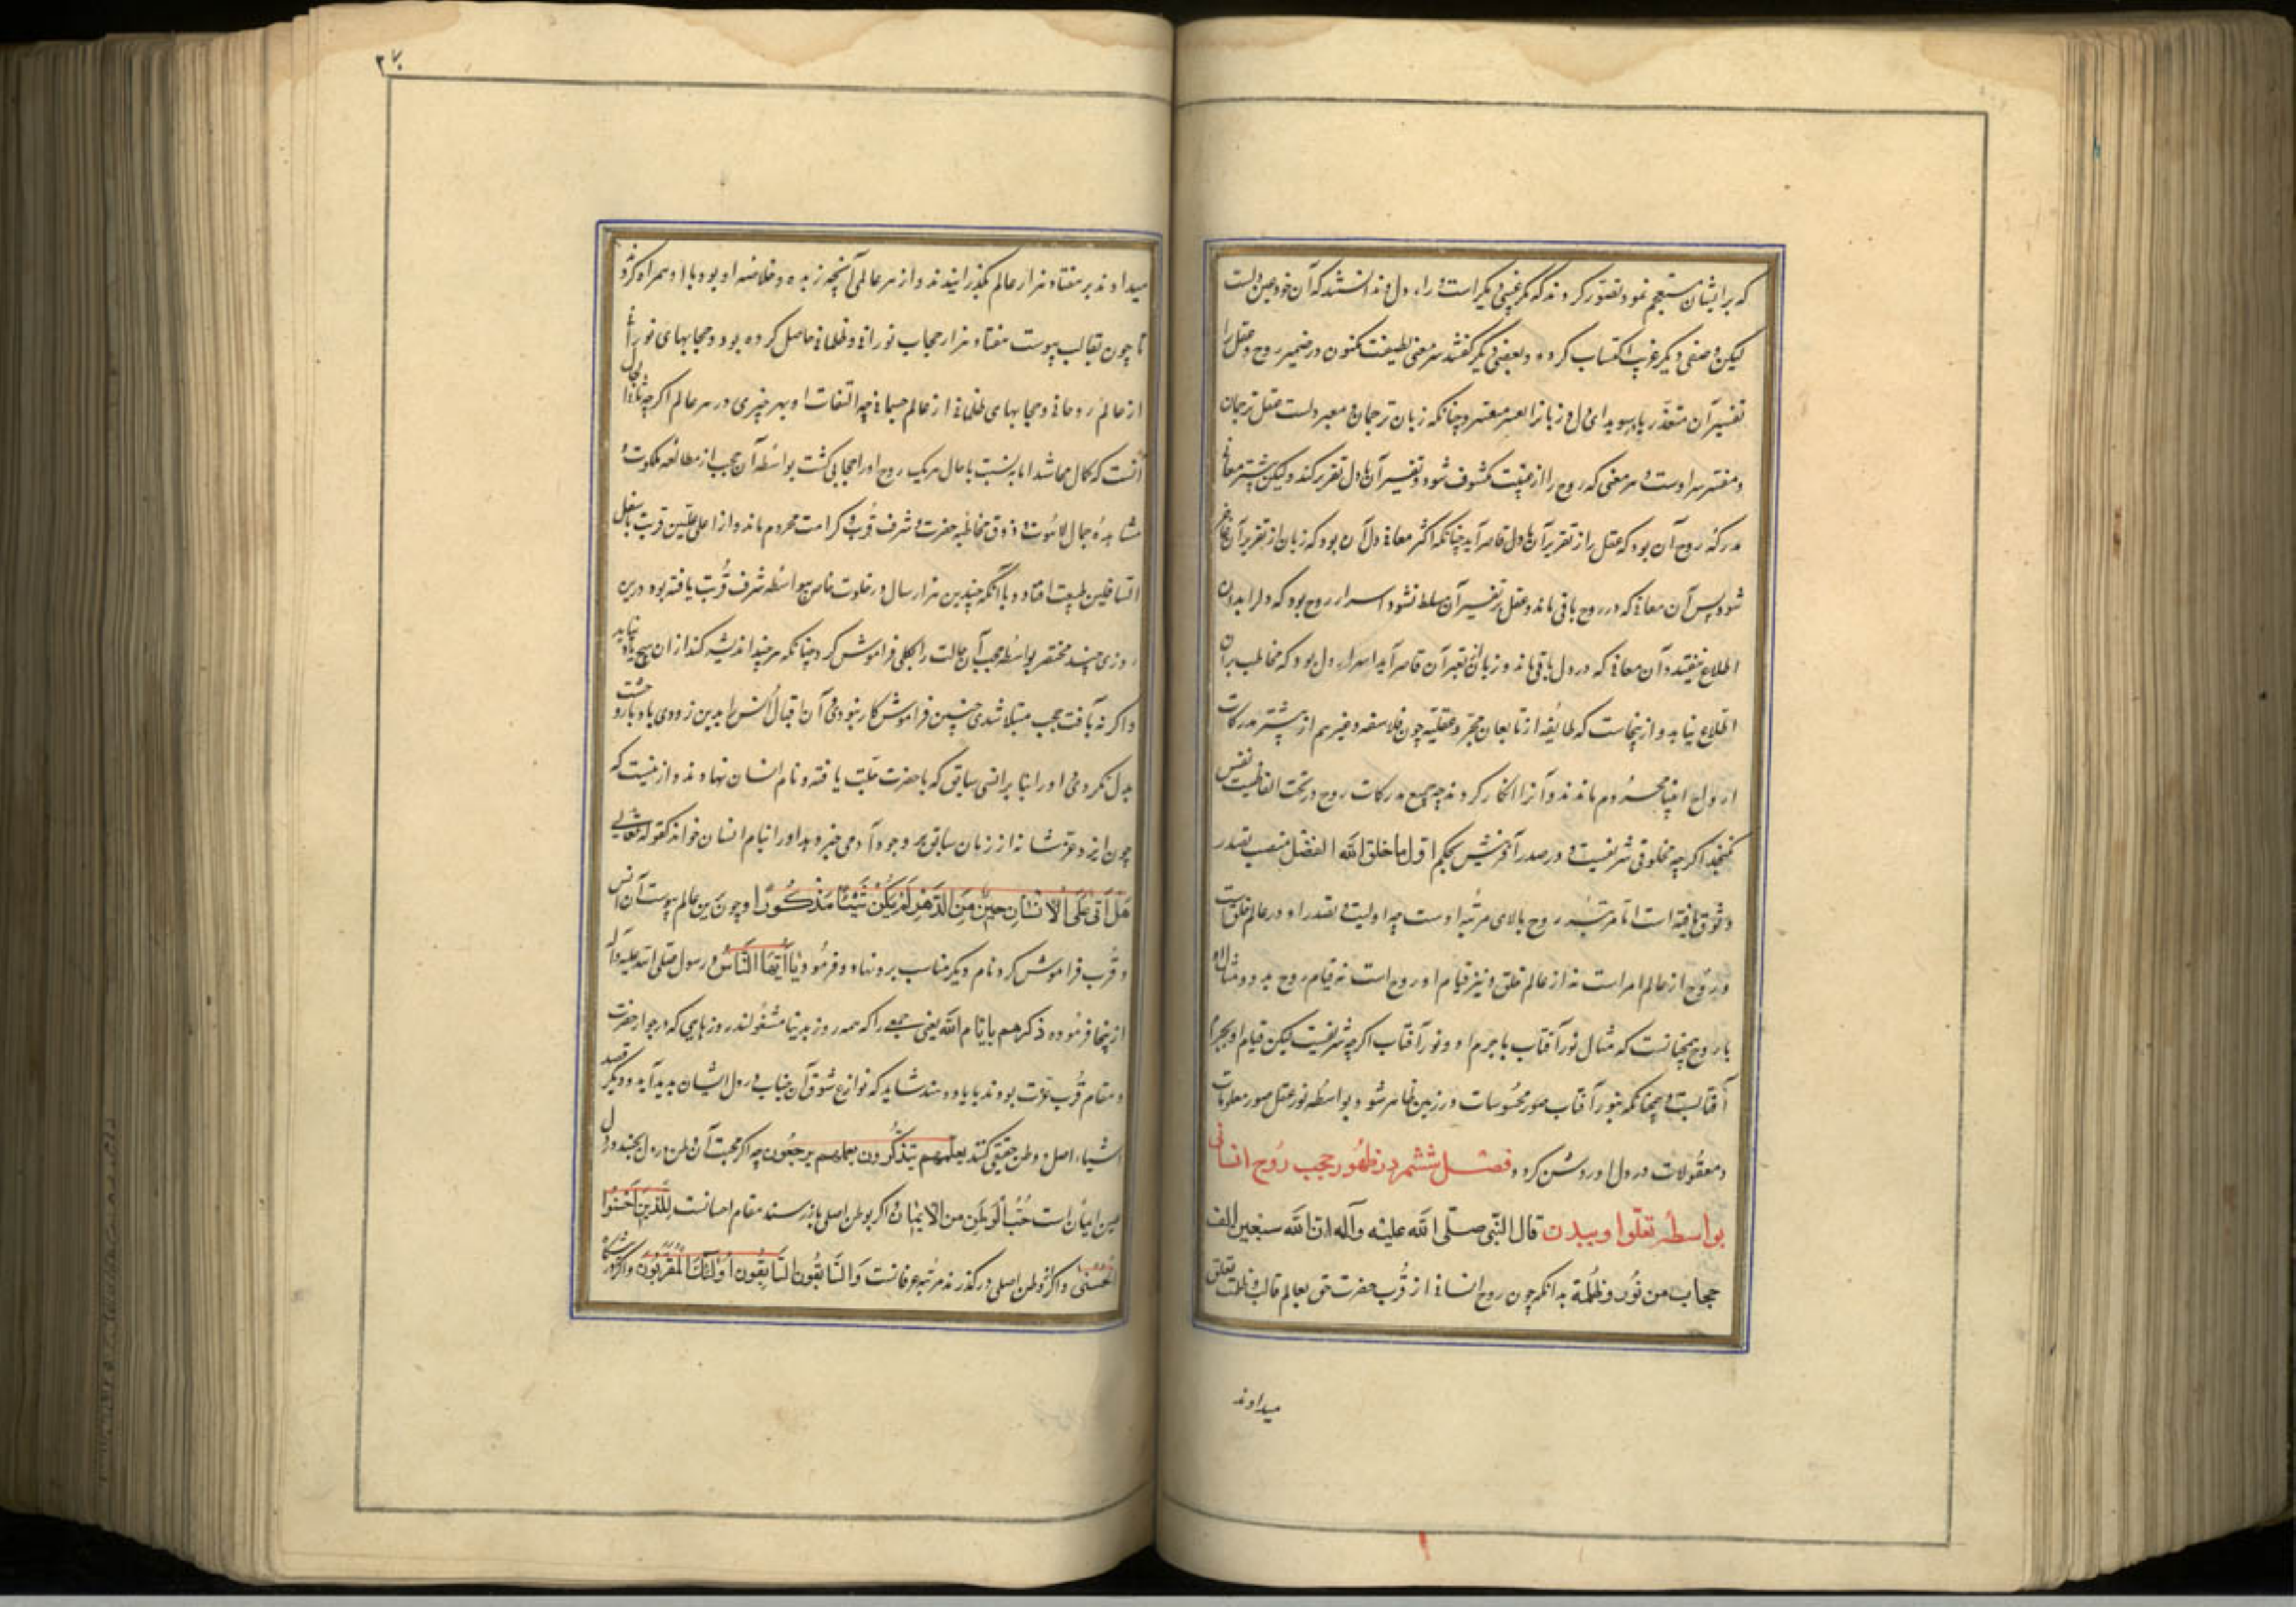 که برایشان مستعجم نمود تصور کردند که مگر غیبی دیگر است ورای دل و ندانستند که آن خود عین دلست
لیکن وصفی دیگر غریب اکتساب کرده و بعضی دیگر گفتند سر معنی لطیفست مکنون در ضمیر روح و عقل را
تفسیر آن متعذر یا در سویدای دل و زبانرا تعبیر معتبر و چنانکه زبان ترجمان و معبر دلست عقل ترجمان
و مفسر سر اوست و هر معنی که روح را از غیب مکشوف شود و تفسیر آن با دل تقریر کند ولیکن بیشتر معانی
مدرکه روح آن بود که عقل از تقریر آن با دل قاصر آید چنانکه اکثر معانی دل آن بود که زبان از تقریر آن عاجز
شود پس آن معانی که در روح باقی ماند و عقل بر تفسیر آن مسلط نشود اسرار روح بود که دلرا بدان
اطلاع نیفتد و آن معانی که در دل باقی ماند و زبان از تعبیر آن قاصر آید اسرار دل بود که مخاطب بر آن
اطلاع نیابد و ازینجاست که طایفه از تابعان مجرد عقلیه چون فلاسفه و غیرهم از بیشتر مدرکات
ارواح انبیا محروم ماندند و آنرا انکار کردند چه جمیع مدرکات روح در تحت
نگنجد اگرچه مخلوقی شریفست و در صدر آفرینش بحکم اول ما خلق الله العقل منصب تصدر
و تفوق یافته است اما مرتبه روح بالای مرتبه اوست چه اولیت و تصدر او در عالم خلق است
و روح از عالم امر است نه از عالم خلق و نیز قیام او بروح است نه قیام روح بدو و مثال او
با روح همچنانست که مثال نور آفتاب با جرم او و نور آفتاب اگرچه شریفست لیکن قیام او بجرم
آفتابست و همچنانکه بنور آفتاب صور محسوسات در زمین ظاهر شود بواسطه نور عقل صور معلومات
و معقولات در دل او روشن گردد فصل ششم در ظهور حجب روح انسانی
بواسطه تعلق او ببدن قال النبی صلی الله علیه وآله ان الله سبعین الف
حجاب من نور و ظلمة بدانکه چون روح انسانی از قرب حضرت حق بعالم قالب و ظلمت تعلق
میدادند
۲۷
میدادند بر هفتاد هزار عالم بگذرانیدند و از هر عالمی آنچه زبده و خلاصه او بود با او همراه کردند
تا چون بقالب پیوست هفتاد هزار حجاب نورانی و ظلمانی حاصل کرده بود و حجابهای نورانی
از عالم روحانی و حجابهای ظلمانی از عالم جسمانی چه التفات او بهر چیزی در هر عالم اگرچه
آلت کمال میشد اما به نسبت با حال هر یک روح او را حجابی گشت بواسطه آن حجب از مطالعه ملکوت و
مشاهده جمال لاهوت و ذوق مخاطبه حضرت و شرف قرب و کرامت محروم ماند و از اعلی علیین قربت باسفل
السافلین طبیعت افتاد و با آنکه چندین هزار سال در خلوت خاص بیواسطه شرف قربت یافته بود درین
روزی چند مختصر بواسطه حجب آن حالت را بکلی فراموش کرد چنانکه هر چند اندیشه کند از آن هیچ یاد نیاید
و اگر نه بآفت حجب مبتلا شدی چنین فراموش کار نبودی و آن اقبال انس را بدین زودی با ادبار وحشت
بدل نکردی و او را بنابر انس سابق که با حضرت عزت یافته و نام انسان نهادند و ازینست که
چون ایزد عز شانه از زمان سابق بر وجود آدمی خبر دهد او را بنام انسان خواند کقوله تعالی
هل أتی علی الانسان حین من الدهر لم یکن شیئا مذکورا و چون بدین عالم پیوست آن انس
و قرب فراموش کرد نام دیگر مناسب برو نهاد و فرمود یا أیها الناس و رسول صلی الله علیه وآله
ازینجا فرموده ذکرهم بایام الله یعنی جمعی را که همه روز بدنیا مشغولند روزهایی که در جوار حضرت
و مقام قرب عزت بودند با یاد دهند شاید که نوازع شوق آن جناب در دل ایشان پدید آید و دیگر قصد
آشیانه اصل و وطن حقیقی کنند لعلهم یتذکرون لعلهم یرجعون چه اگر محبت آن وطن در دل بجنبد در دل
عین ایمان است حب الوطن من الایمان و اگر بوطن اصلی باز رسند مقام احسانست للذین احسنوا
الحسنی و اگر از وطن اصلی در گذرند مرتبه عرفانست و السابقون السابقون اولئک المقربون و اگر در